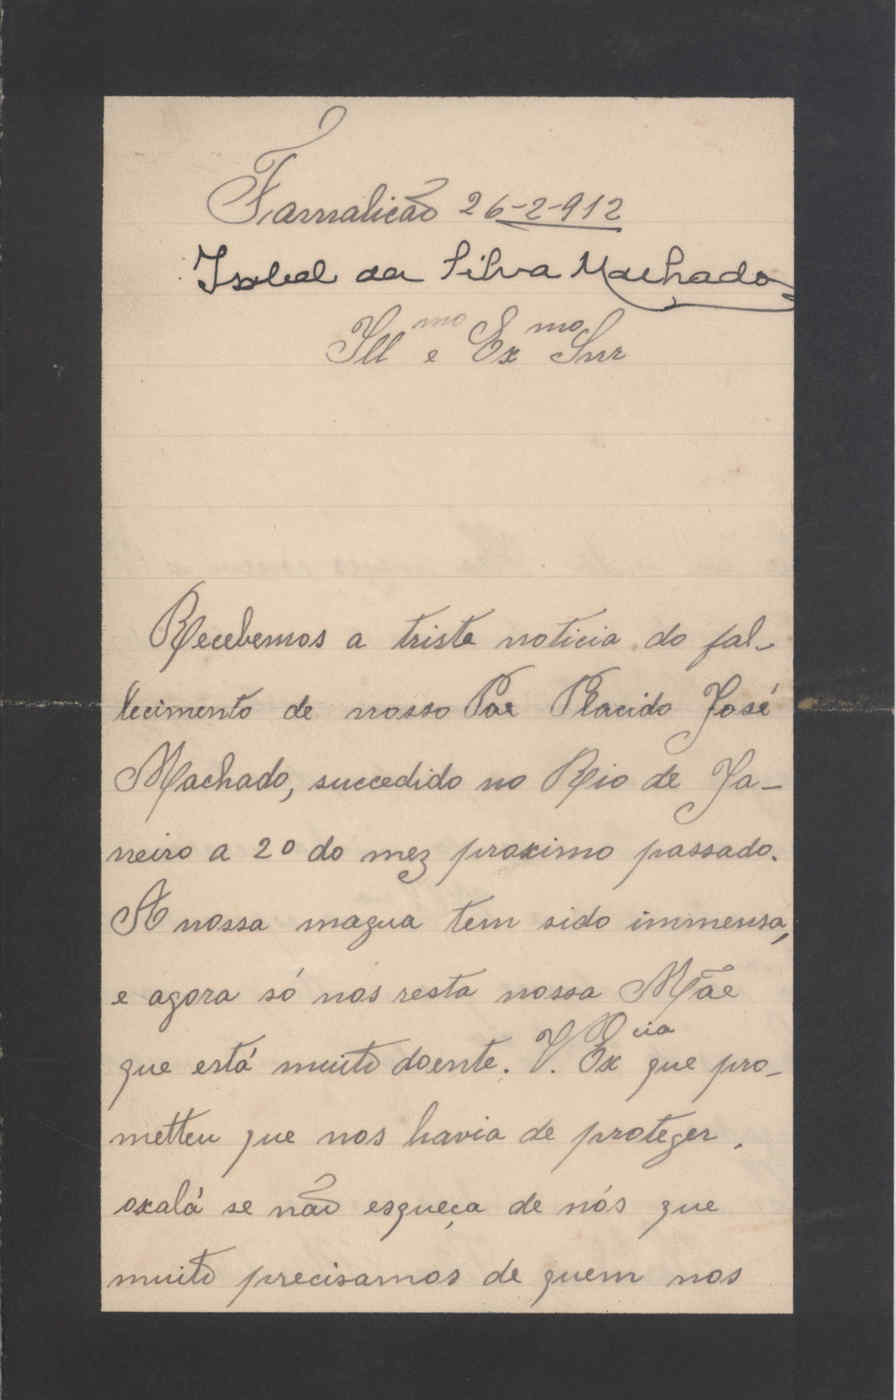 Famalicão 26-2-912
Isabel da Silva Machado
Ill mo e Ex mo Snr
Recebemos a triste noticia do fal-
lecimento de nosso Pae Placido José
Machado, succedido no Rio de Ja-
neiro a 20 do mez proximo passado.
A nossa magua tem sido immensa,
e agora só nos resta nossa Mãe
que está muito doente. V. Ex cia que pro-
metteu que nos havia de proteger,
oxalá se não esqueça de nós que
muito precisamos de quem nos